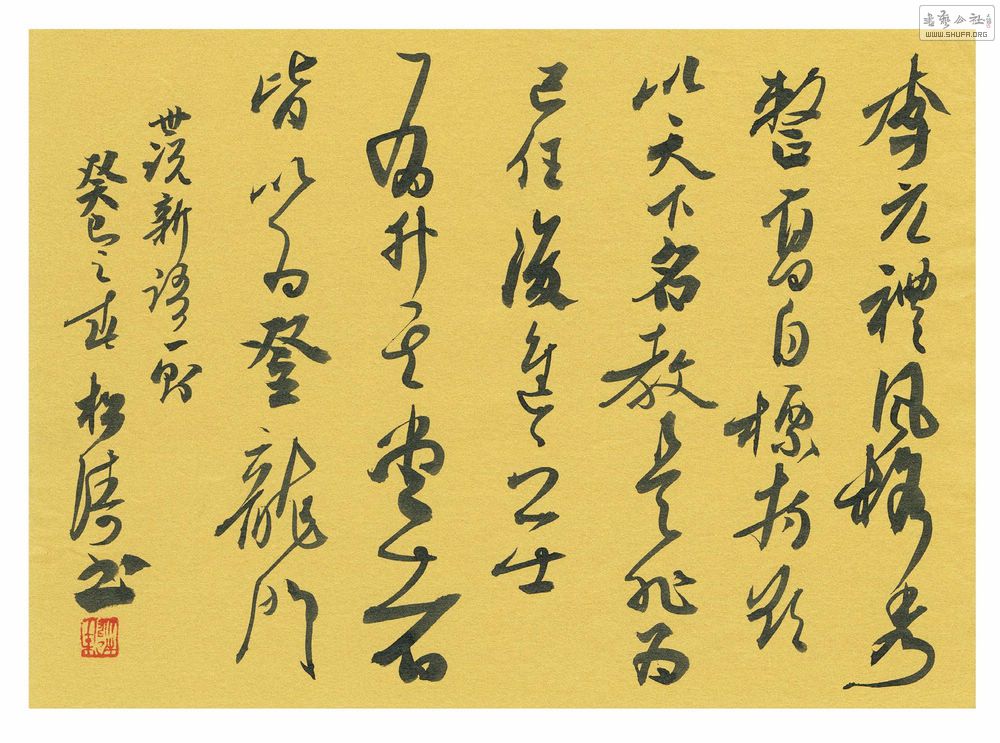 李元禮風格秀
整高自標持欲
以天下名教是非为
已任後進之士
有升其堂者
皆以为登龍門
世说新語一則
癸巳之春松濤书
WWW.SHUFA.ORG